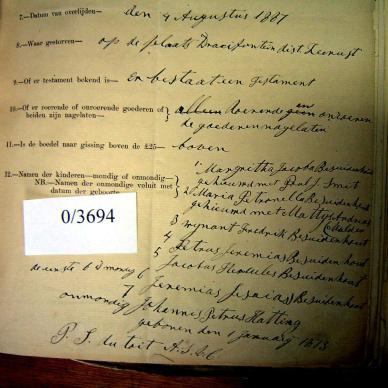 7.—Datum van overlijden— den 9 Augustus 1887
8.—Waar gestorven— op de plaats Draaifontein dist Zeerust
9.—Of er testament bekend is— Er bestaat een testament
10.—Of er roerende of onroerende goederen of beiden zijn nagelaten— roerende en onroerende
goederen nagelaten
11.—Is de boedel naar gissing boven de £25— boven
12.—Namen der kinderen—mondig of onmondig—
NB.—Namen der onmondige voluit met
datum der geboorte
1 Margritha Jacoba Besuidenhout
gehieuwd met Paul J. Smit
2 Maria Petronella Besuidenhout
gehieuwd met Mattys Andries
3 Wynant Fredrik Besuidenhout
4
5 Petrus Jeremias Besuidenhout
Jacobus Hercules Besuidenhout
de eerste 6 mondig 6 Jeremias Jesaias Besuidenhout
onmondig 7 Johannes Petrus Hatting
geboren den 1 Januarij 1873
P. S. du Toit
0/3694